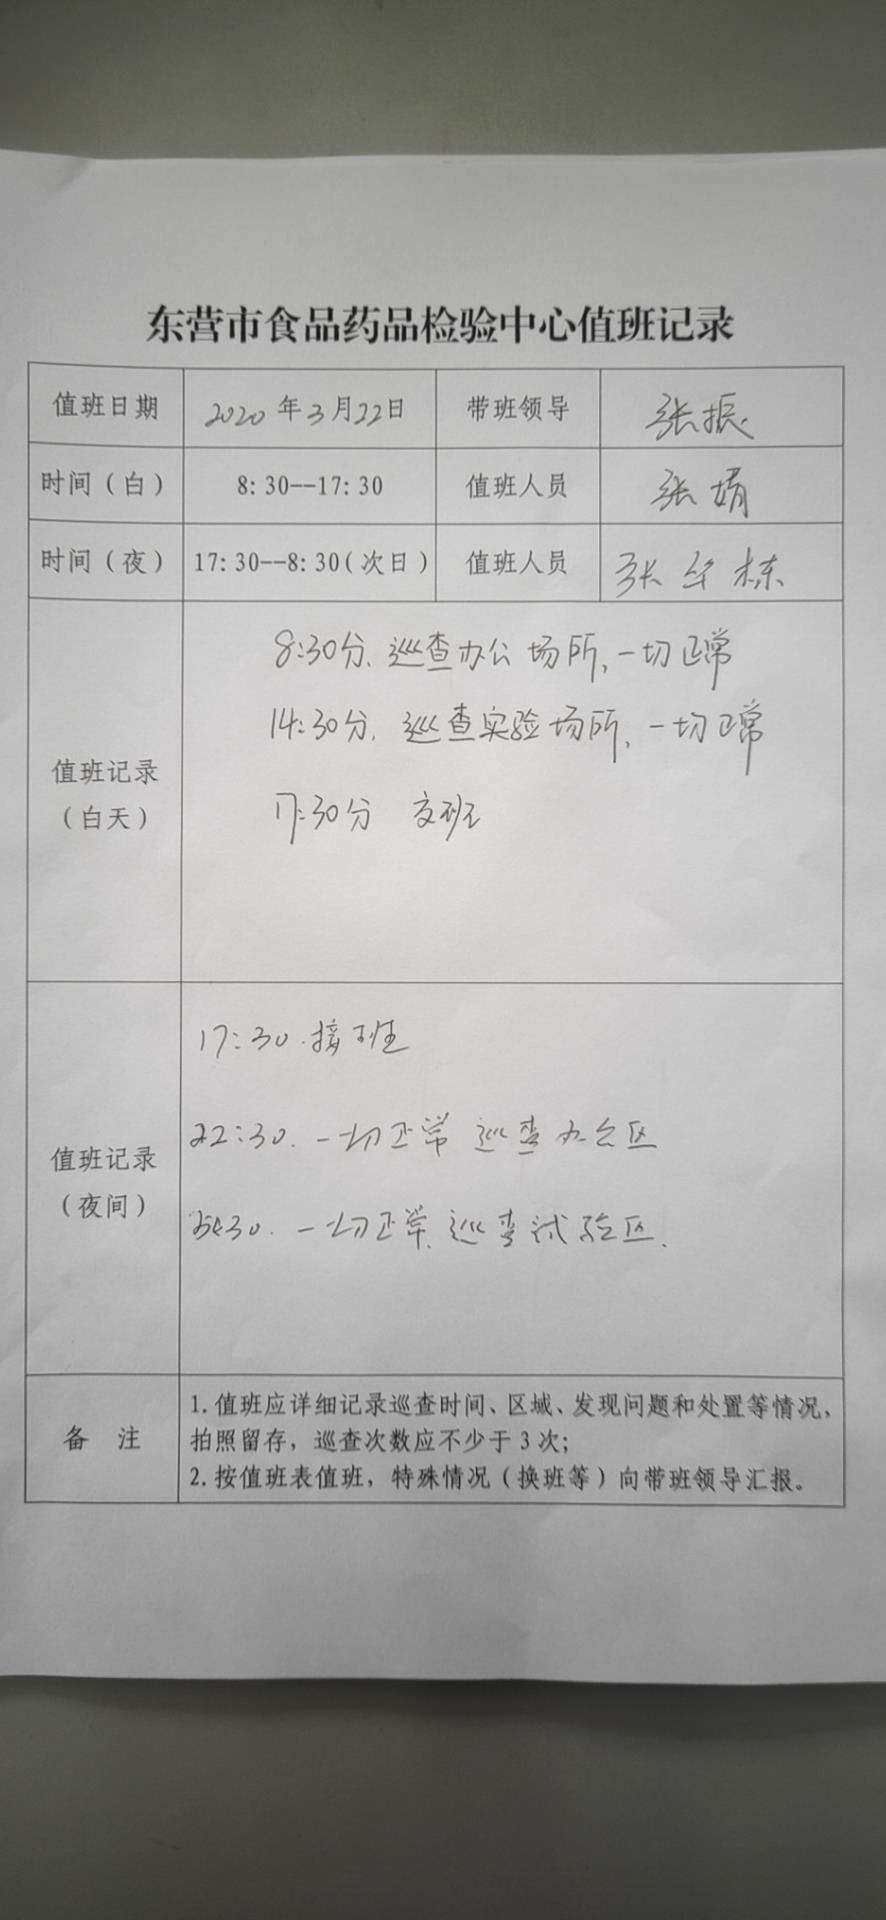 东营市食品药品检验中心值班记录
值班日期 2020年3月22日 带班领导 张振
时间（白） 8:30--17:30 值班人员 张娟
时间（夜） 17:30--8:30（次日） 值班人员 张华栋
8:30分. 巡查办公场所, 一切正常
14:30分. 巡查实验场所, 一切正常
值班记录
（白天）
17:30分 交班
17:30.接班
22:30. 一切正常 巡查办公区
值班记录
（夜间）
30. 一切正常. 巡查试验区.
备 注
1. 值班应详细记录巡查时间、区域、发现问题和处置等情况，
拍照留存，巡查次数应不少于 3 次；
2. 按值班表值班，特殊情况（换班等）向带班领导汇报。